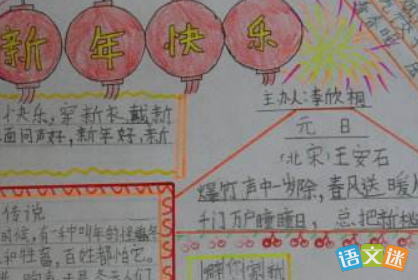 新年快乐
快乐,穿新衣,戴新
面问声好,新年好,新
主办:李欣桐
元日
(北宋)王安石
爆竹声中一岁除,春风送暖入
千门万户曈曈日,总把新桃
传说
时候,有一种叫年的怪兽
和牲畜,百姓都怕它。
语文迷